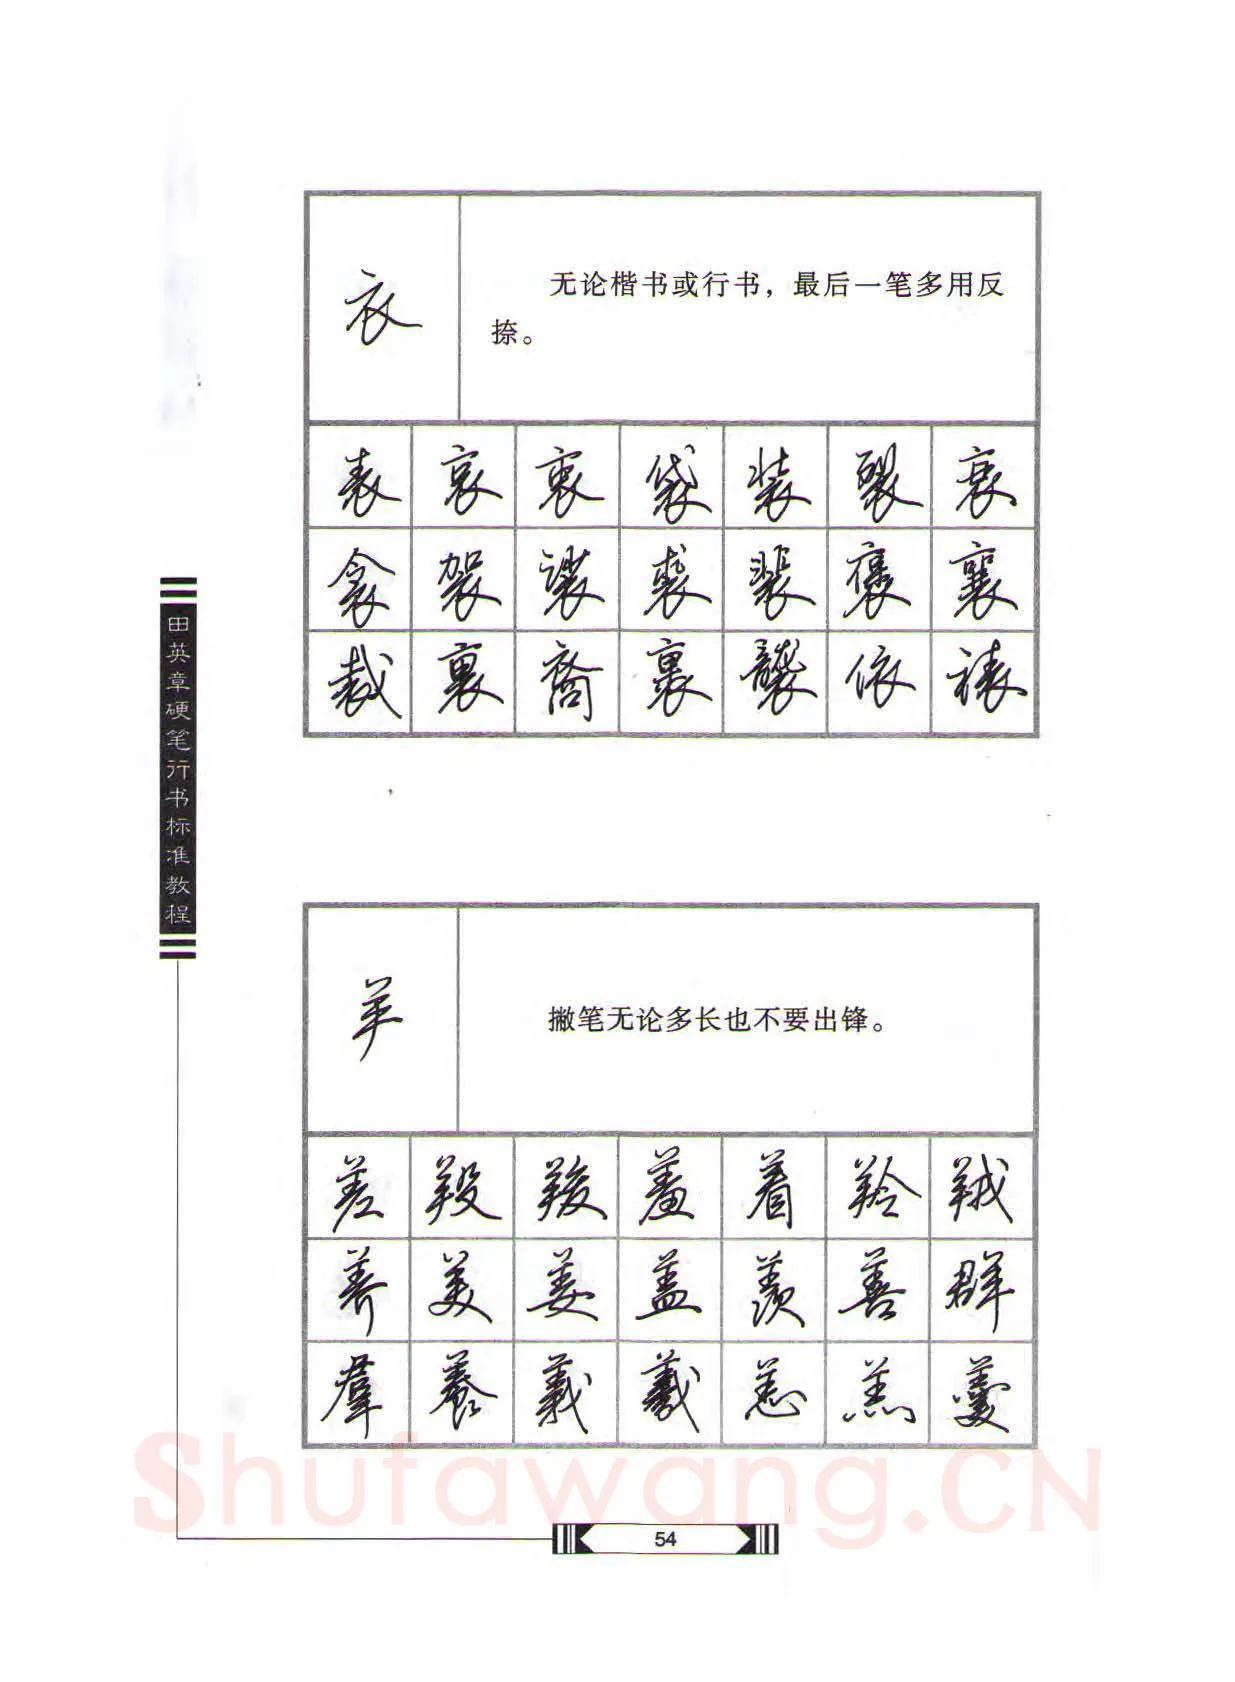 衣
无论楷书或行书，最后一笔多用反
捺。
表 哀 衷 袋 装 裂 衰
衾 袈 裟 裘 裴 褒 襄
裁 裏 裔 裹 襲 依 裱
田英章硬笔行书标准教程
羊
撇笔无论多长也不要出锋。
差 羖 羧 羞 着 羚 羢
养 美 姜 盖 羡 善 群
羣 養 義 羲 恙 羔 羹
Shufawang.CN
54